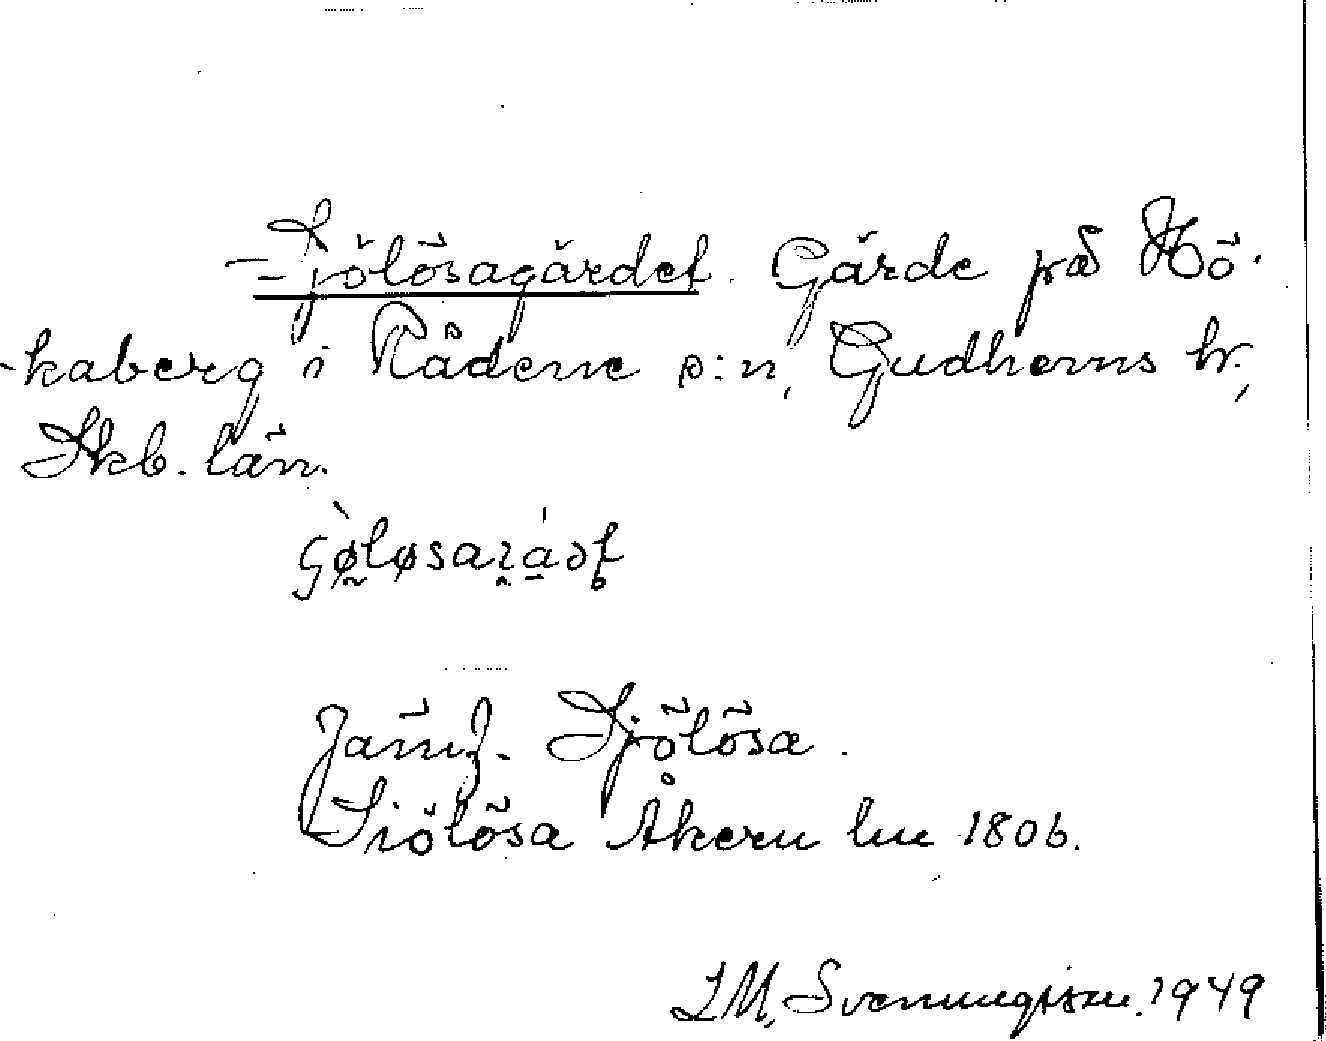 Sjölösagärdet. Gärde på Hö-
kaberg i Rådene s:n, Gudhems hr,
Skb. län.
Jämf. Sjölösa.
Siölösa Åkern lue 1806.
I M, Svenningsson. 1949